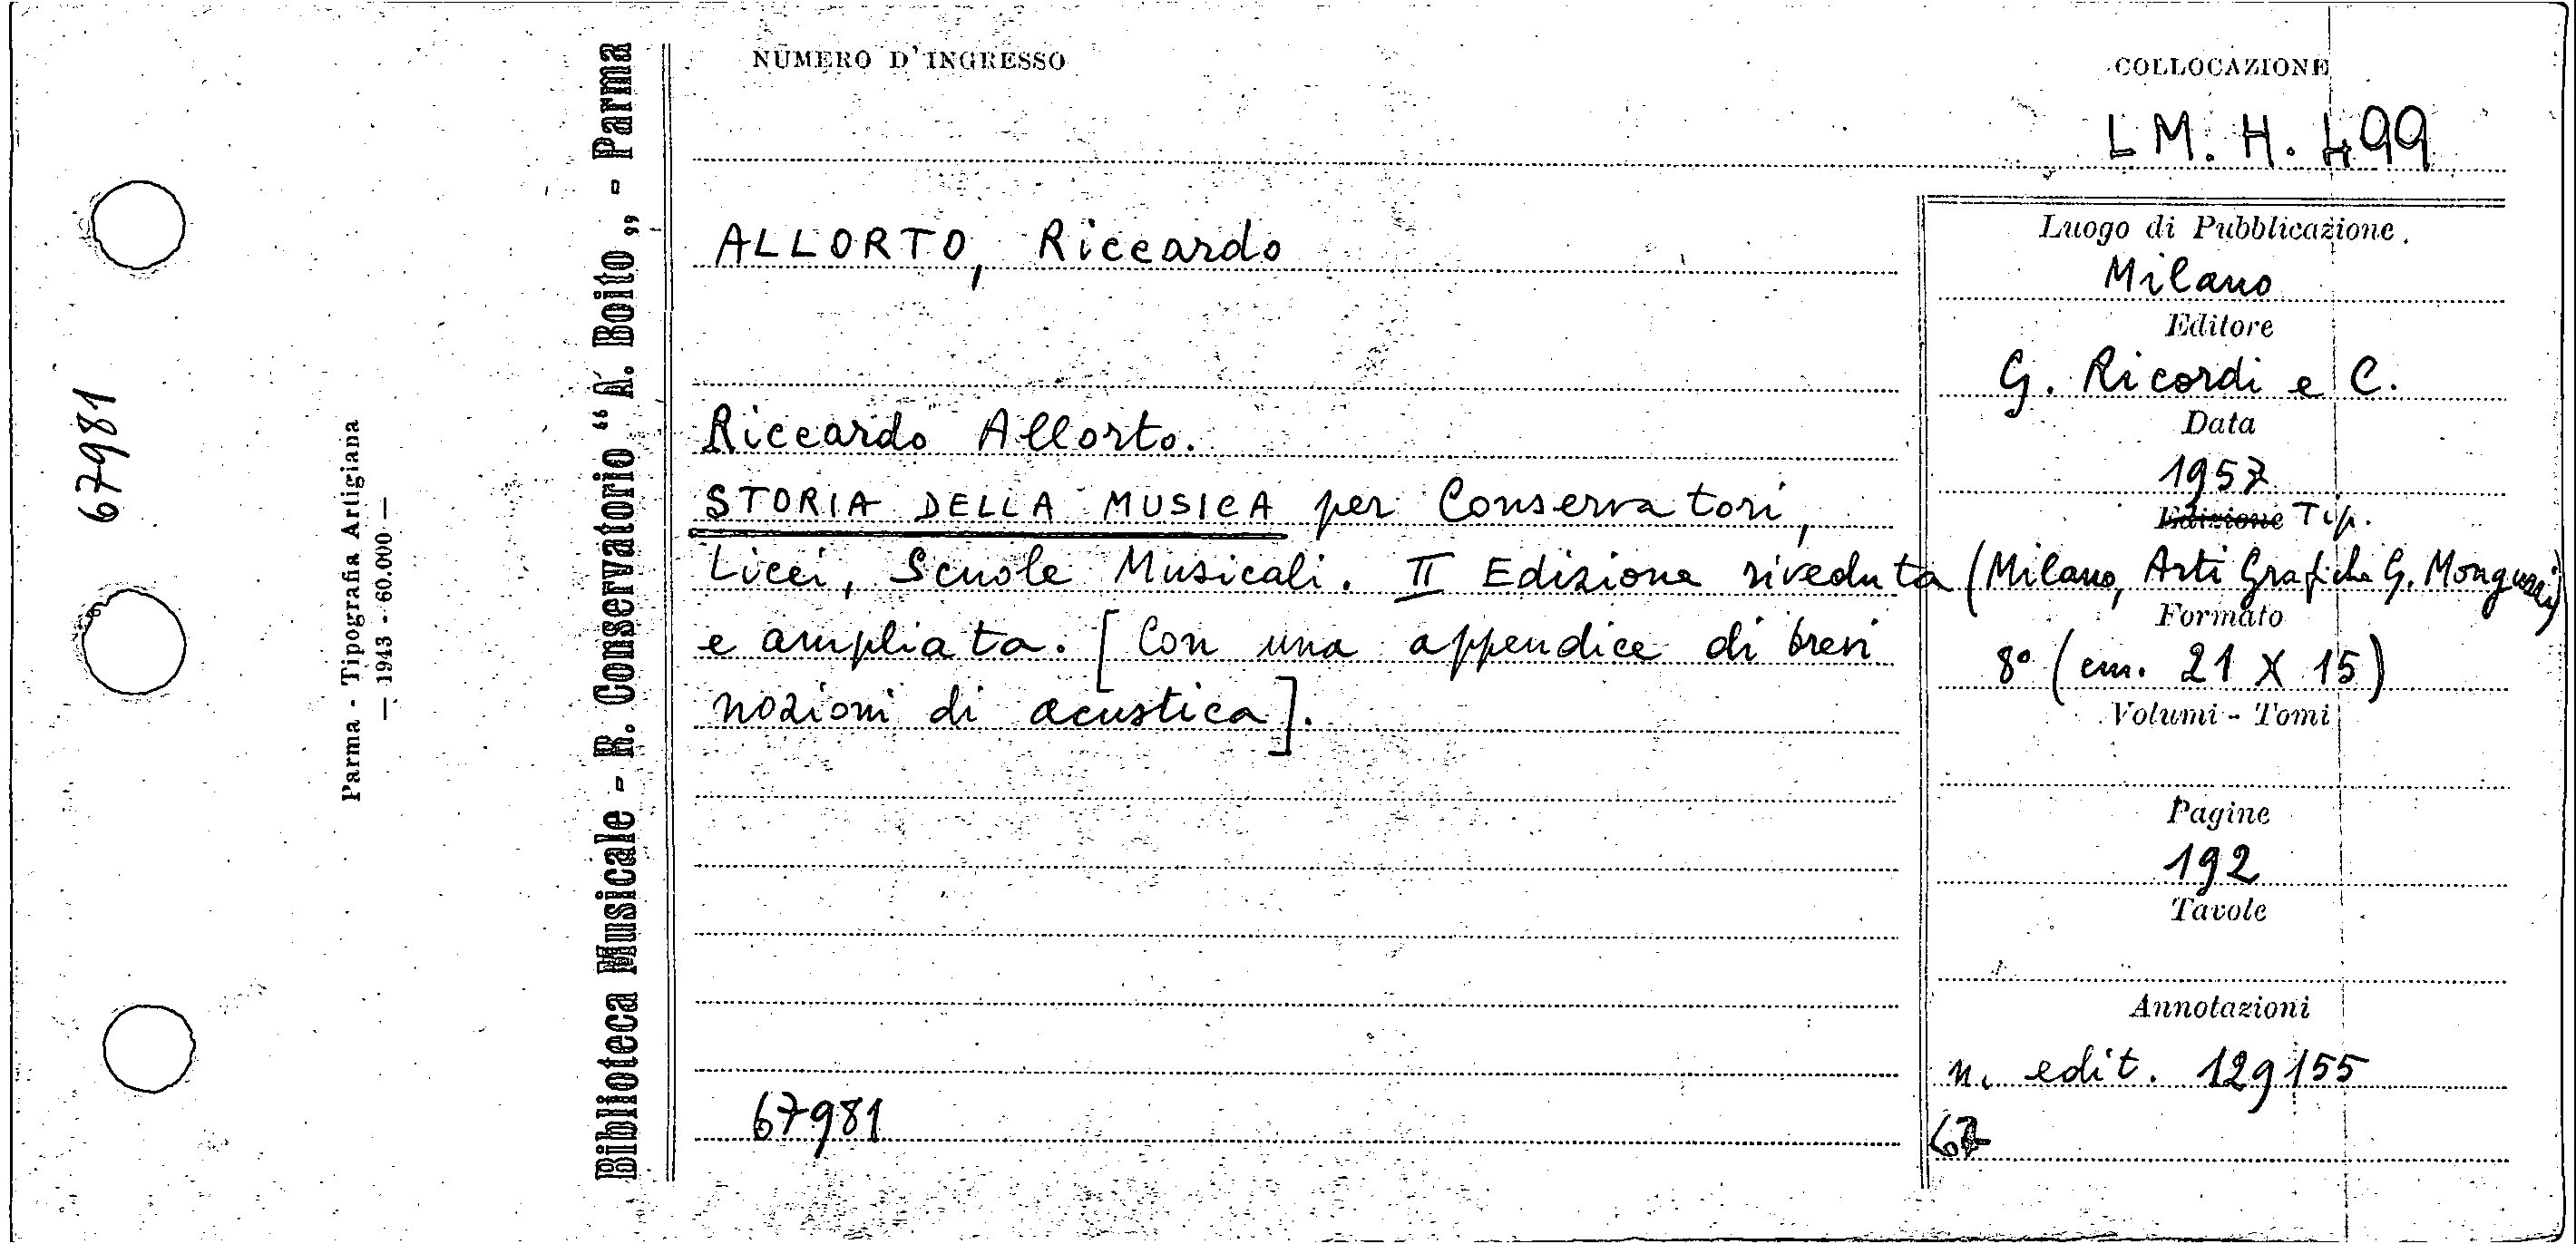 NUMERO D'INGRESSO
COLLOCAZIONE
LM. H. 499
67981
Parma - Tipografia Artigiana
— 1943 - 60.000 —
Biblioteca Musicale - R. Conservatorio “A. Boito„ - Parma
ALLORTO, Riccardo
Riccardo Allorto.
STORIA DELLA MUSICA per Conservatori,
Licei, Scuole Musicali. II Edizione riveduta
e ampliata. [Con una appendice di brevi
nozioni di acustica].
67981
Luogo di Pubblicazione
Milano
Editore
G. Ricordi e C.
Data
1957
Edizione Tip.
(Milano, Arti Grafiche G. Monguzzi)
Formato
8° (cm. 21 X 15)
Volumi - Tomi
Pagine
192
Tavole
Annotazioni
n. edit. 129155
67